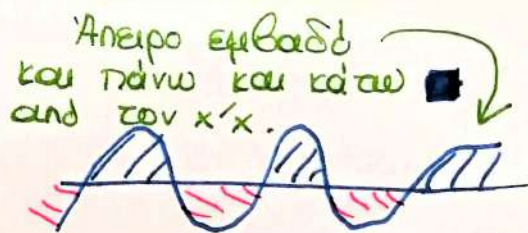 Άπειρο εμβαδό
και πάνω και κάτω
από τον x'x.